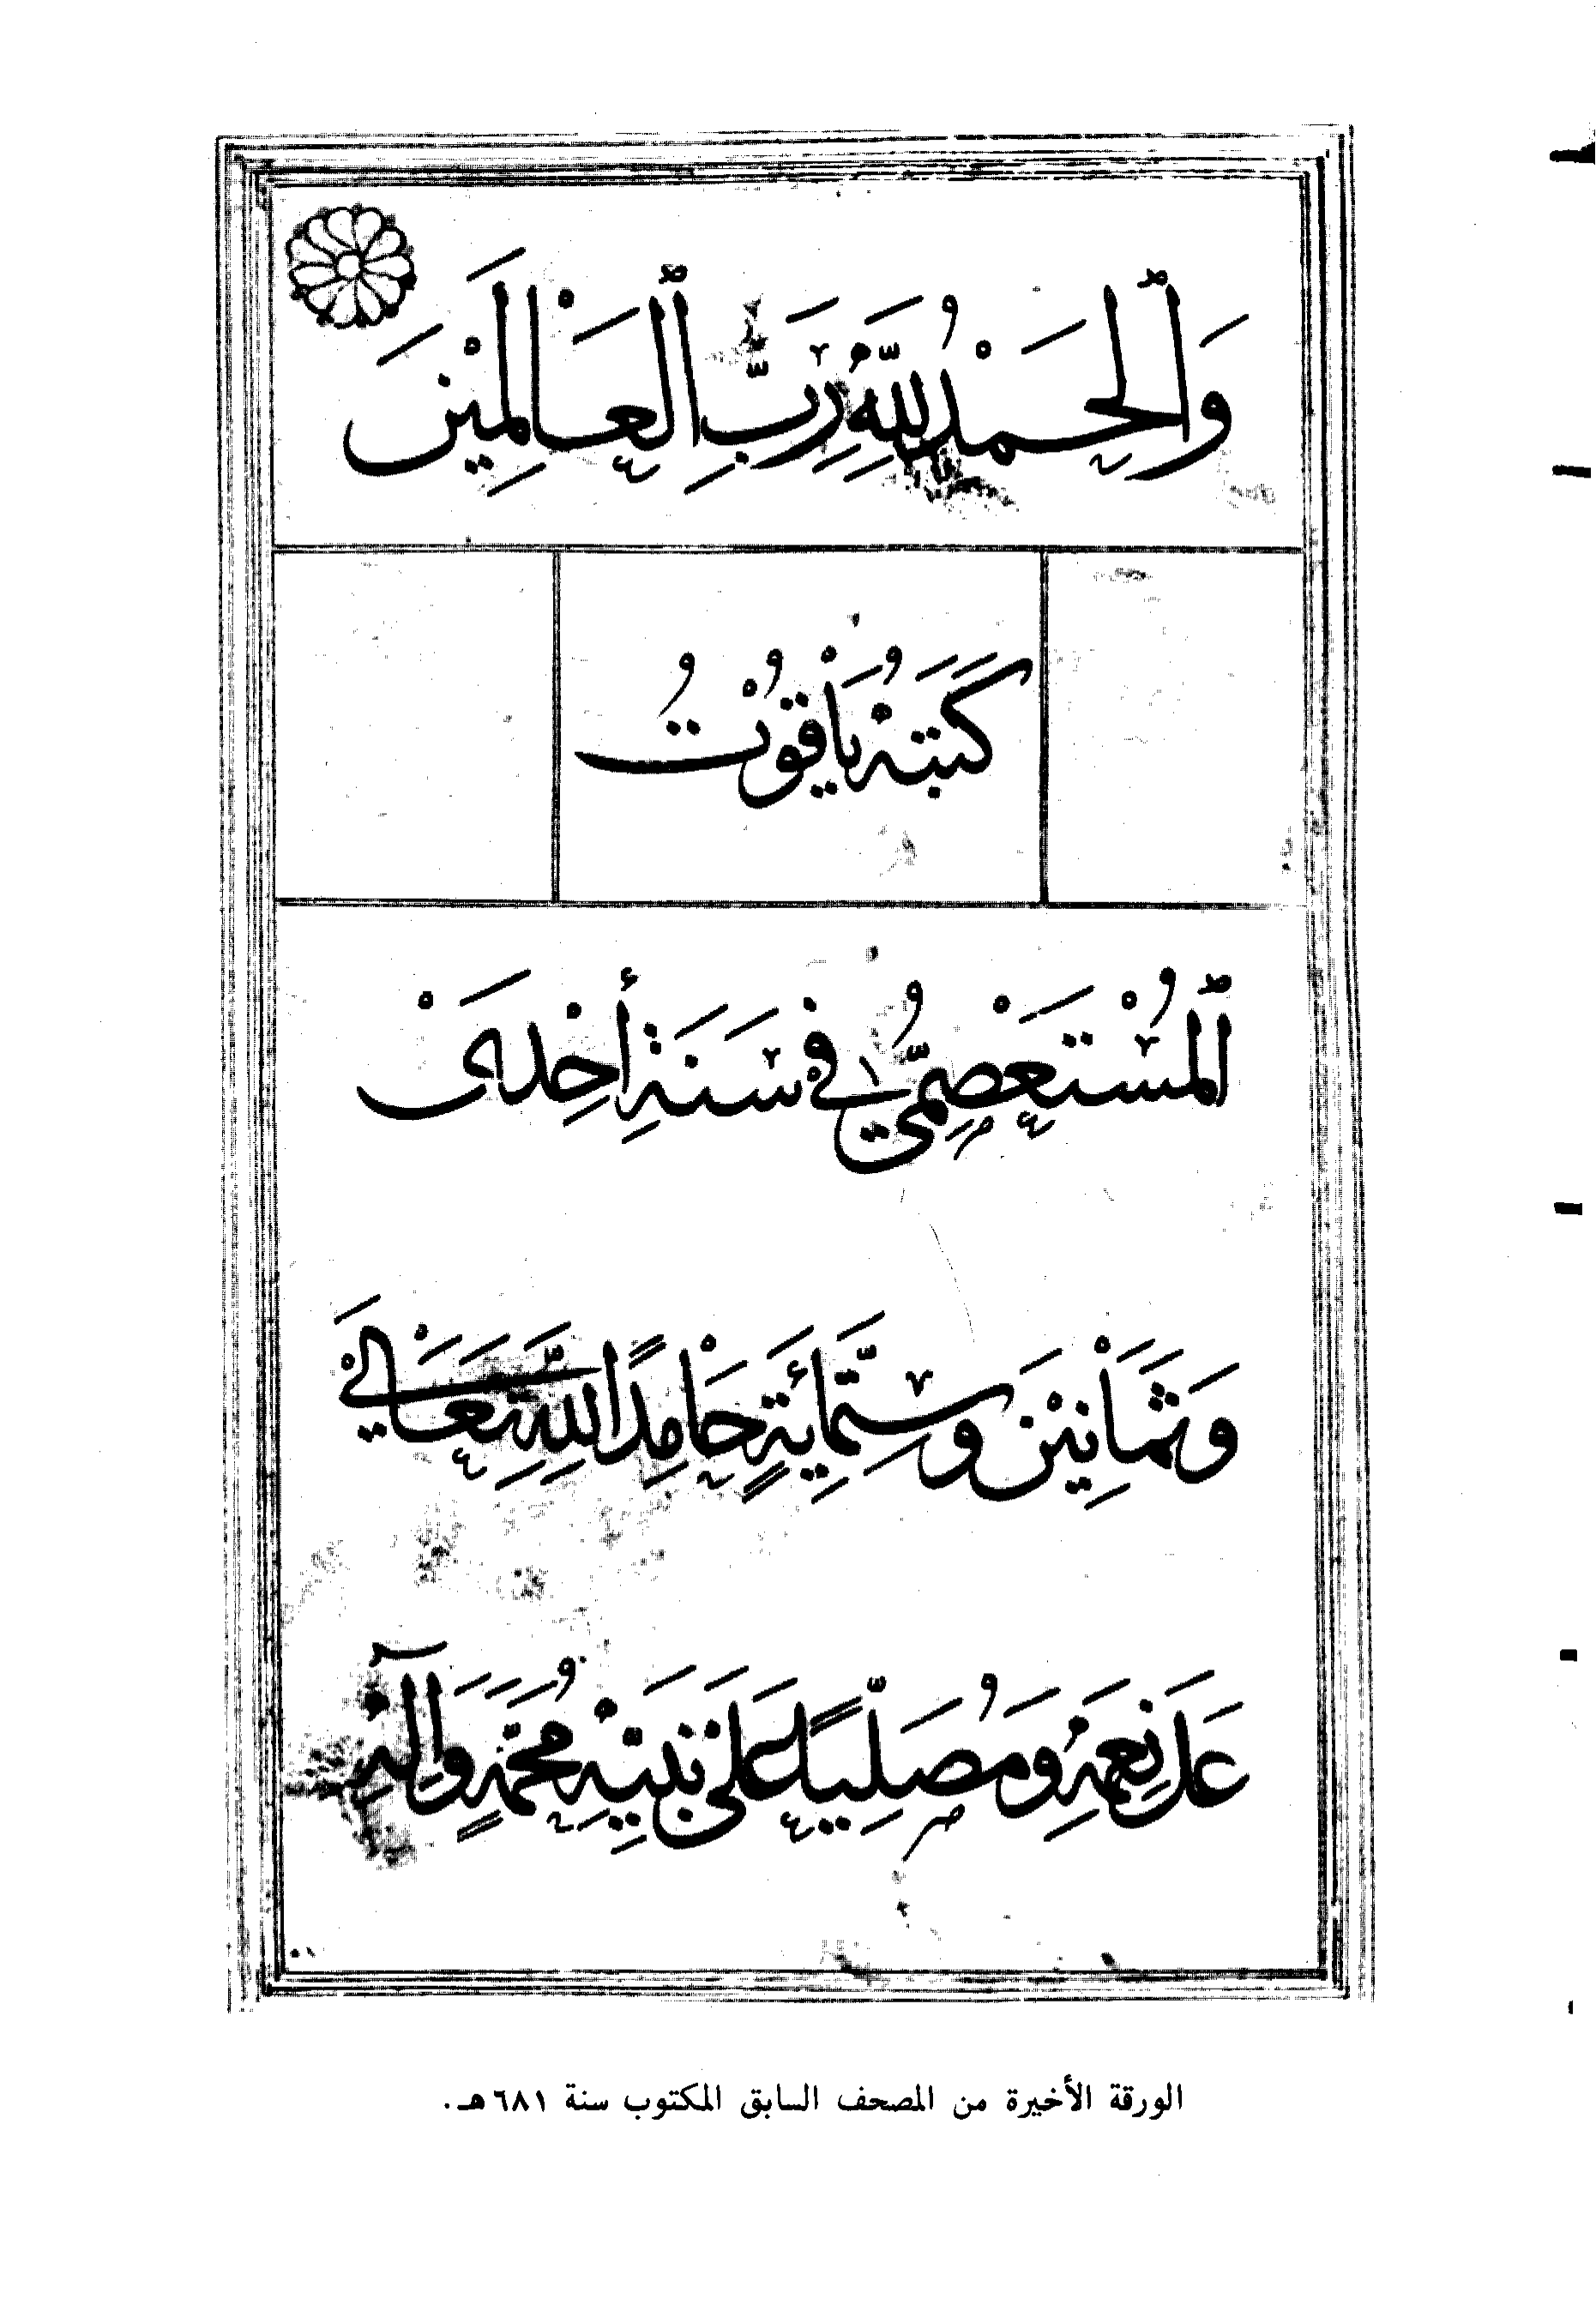 وَٱلْحَمْدُ لِلَّهِ رَبِّ ٱلْعَالَمِيْنَ
كَتَبَهُ يَاقُوْتُ
ٱلْمُسْتَعْصِمِيُّ فِي سَنَةِ أَحْدَىْ
وَثَمَانِيْنَ وَسِتَّمِائَةٍ حَامِدًا لِلَّهِ تَعَالَى
عَلَى نِعَمِهِ وَمُصَلِّيًا عَلَى نَبِيِّهِ مُحَمَّدٍ وَآلِهِ
الورقة الأخيرة من المصحف السابق المكتوب سنة ٦٨١هـ.